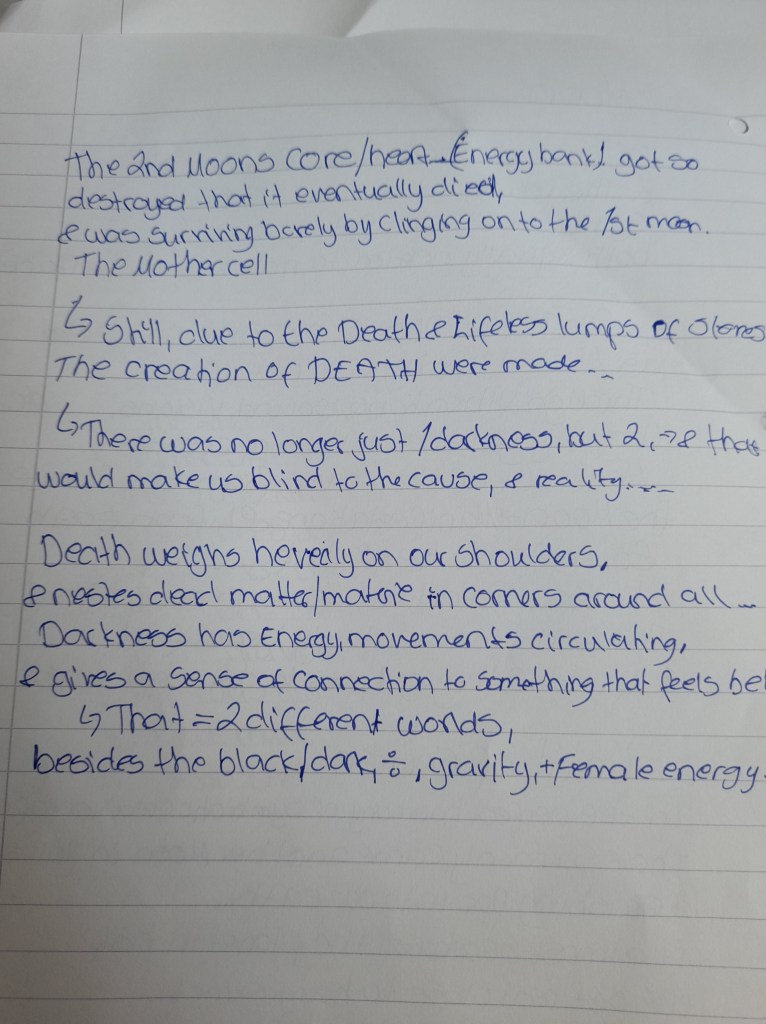 The 2nd Moons core/heart (Energy bank) got so
destroyed that it eventually died,
& was surviving barely by clinging on to the 1st moon.
The Mother cell
↳ Still, due to the Death & Lifeless lumps of stones
The creation of DEATH were made...
↳ There was no longer just 1 darkness, but 2, → & that
would make us blind to the cause, & reality....
Death weighs hevealy on our shoulders,
& nestes dead matter/materie in corners around all...
Darkness has Energy, movements circulating,
& gives a sense of connection to something that feels be
↳ That = 2 different words,
besides the black/dark, ÷, gravity, + Female energy.